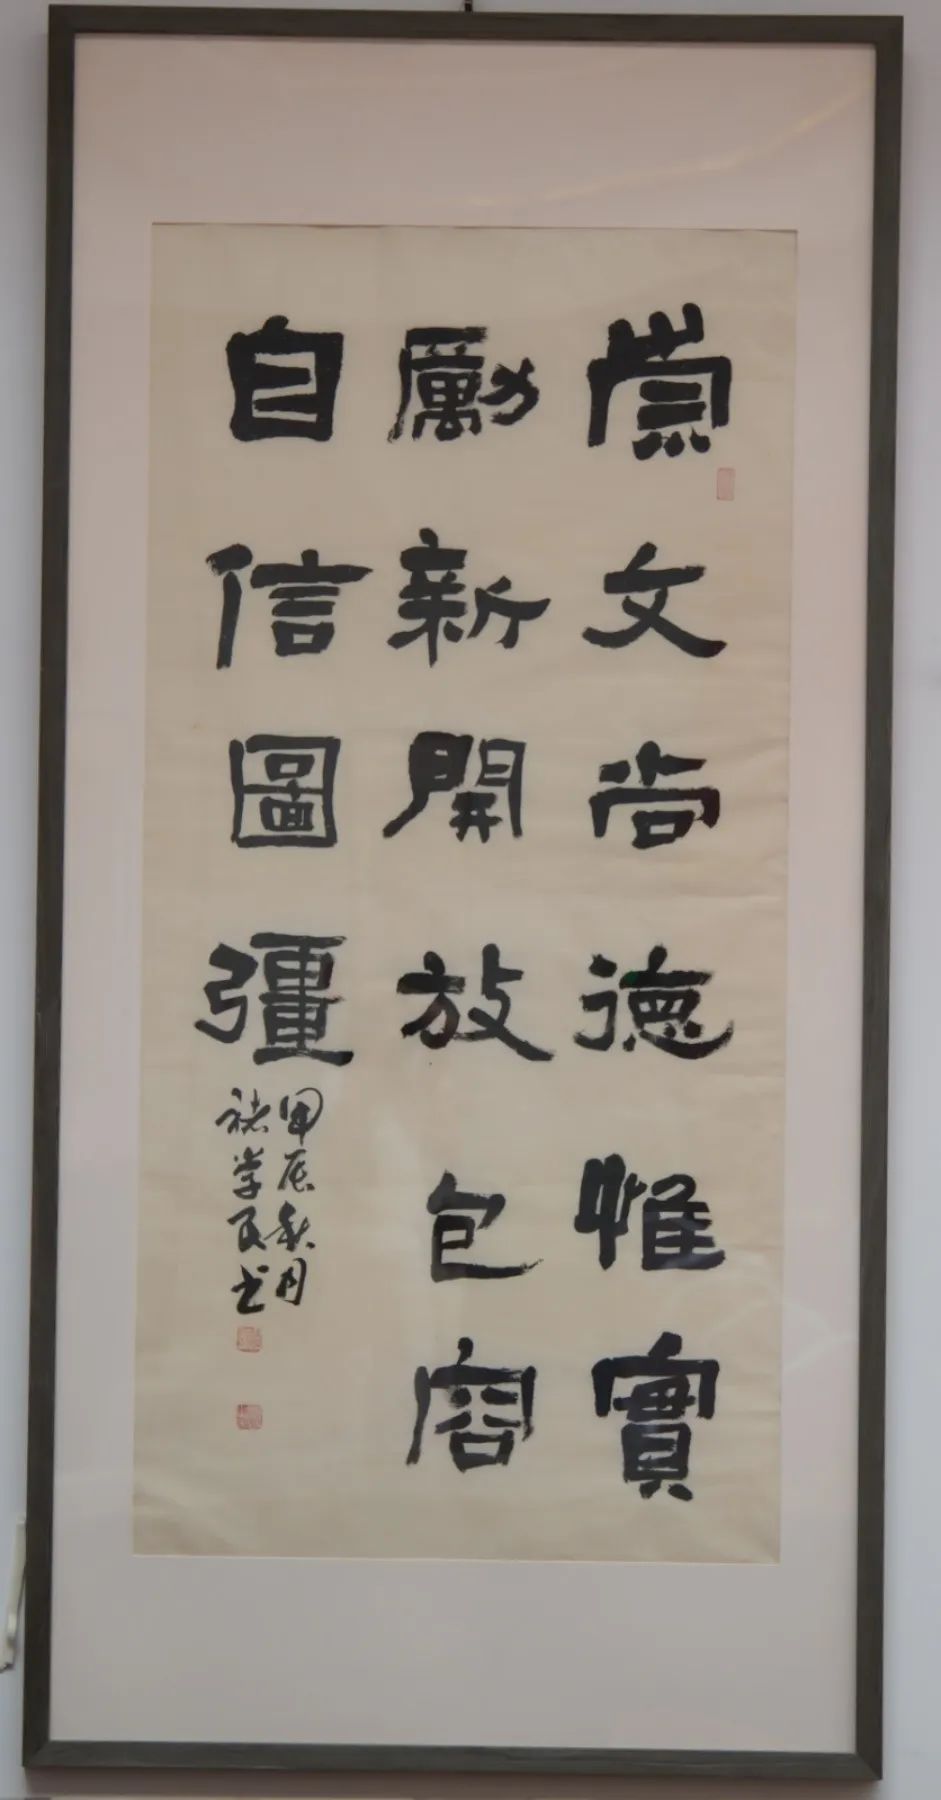 崇文尚德惟實
勵新開放包容
自信圖彊
甲辰秋月
褚学良书